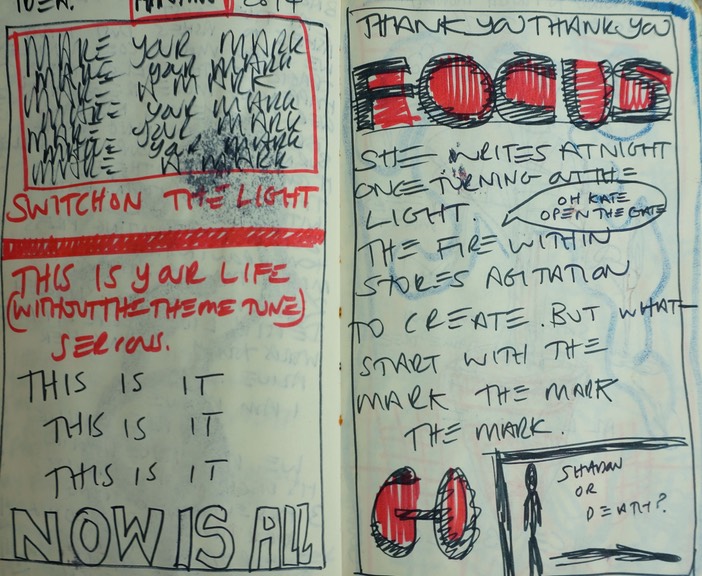 IDEA.
2014
MAKE YOUR MARK
MAKE YOUR MARK
MAKE A MARK
MAKE YOUR MARK
MAKE YOUR MARK
MAKE YOUR MARK
MAKE A MARK
SWITCH ON THE LIGHT
THIS IS YOUR LIFE
(WITHOUT THE THEME TUNE)
SERIOUS.
THIS IS IT
THIS IS IT
THIS IS IT
NOW IS ALL
THANK YOU THANK YOU
FOCUS
SHE WRITES AT NIGHT
ONCE TURNING OUT THE
LIGHT.
OH KATE
OPEN THE GATE
THE FIRE WITHIN
STORES AGITATION
TO CREATE. BUT WHAT
START WITH THE
MARK THE MARK
THE MARK.
GO
SHADOW
OR
DEATH?